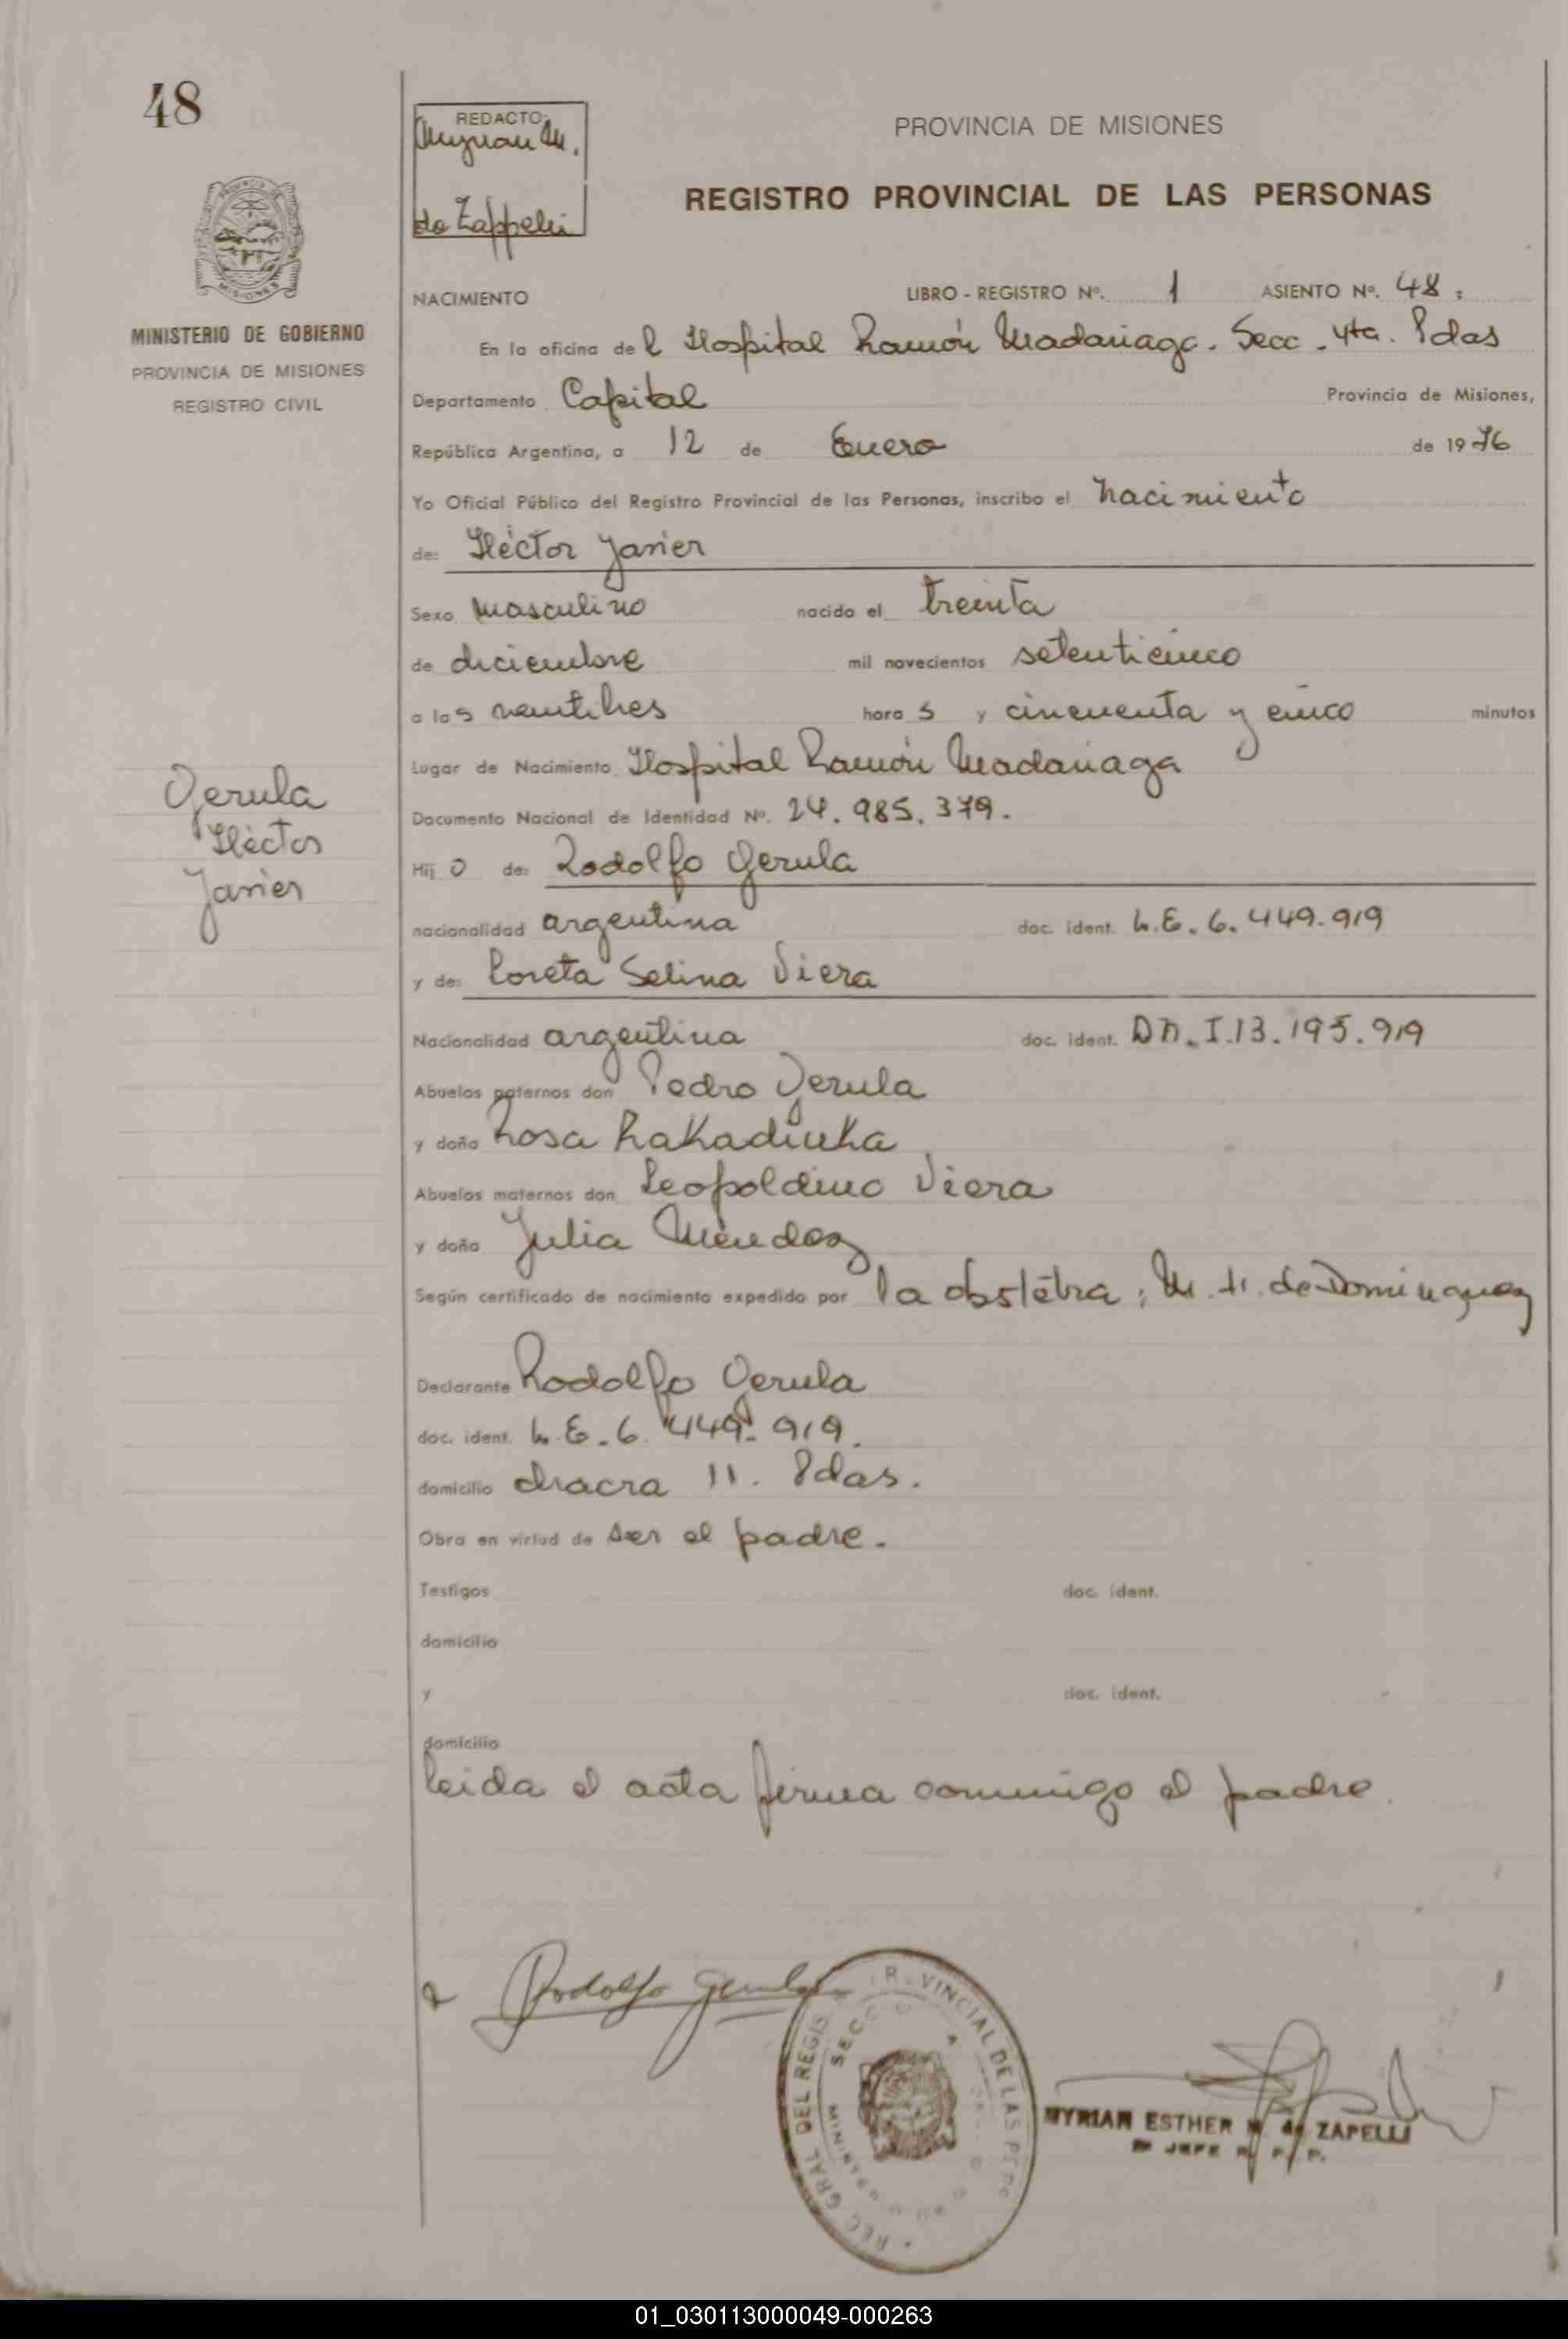 48
REDACTO:
Myrian M.
de Zappelli
PROVINCIA DE MISIONES
REGISTRO PROVINCIAL DE LAS PERSONAS
MINISTERIO DE GOBIERNO
PROVINCIA DE MISIONES
REGISTRO CIVIL
NACIMIENTO LIBRO - REGISTRO Nº. 1 ASIENTO Nº. 48.
En la oficina del Hospital Ramón Madariaga. Secc. 4ta. Pdas
Departamento Capital Provincia de Misiones,
República Argentina, a 12 de Enero de 1976
Yo Oficial Público del Registro Provincial de las Personas, inscribo el nacimiento
de: Héctor Javier
Sexo masculino nacido el treinta
de diciembre mil novecientos setenticinco
a las veintitres horas y cincuenta y cinco minutos
Lugar de Nacimiento Hospital Ramón Madariaga
Documento Nacional de Identidad Nº. 24.985.379.
Gerula
Héctor
Javier
Hijo de: Rodolfo Gerula
nacionalidad argentina doc. ident. L.E. 6.449.919
y de: Loreta Selina Viera
Nacionalidad argentina doc. ident. D.N.I. 13.195.919
Abuelos paternos don Pedro Gerula
y doña Rosa Rakadinka
Abuelos maternos don Leopoldino Viera
y doña Julia Méndez
Según certificado de nacimiento expedido por la obstétra; M. de Dominguez
Declarante Rodolfo Gerula
doc. ident. L.E. 6.449.919.
domicilio chacra 11. Pdas.
Obra en virtud de ser el padre.
Testigos doc. ident.
domicilio
y doc. ident.
domicilio
leida el acta firma conmigo el padre.
Rodolfo Gerula
MYRIAN ESTHER M. de ZAPELLI
JEFE R. P. P.
01_030113000049-000263